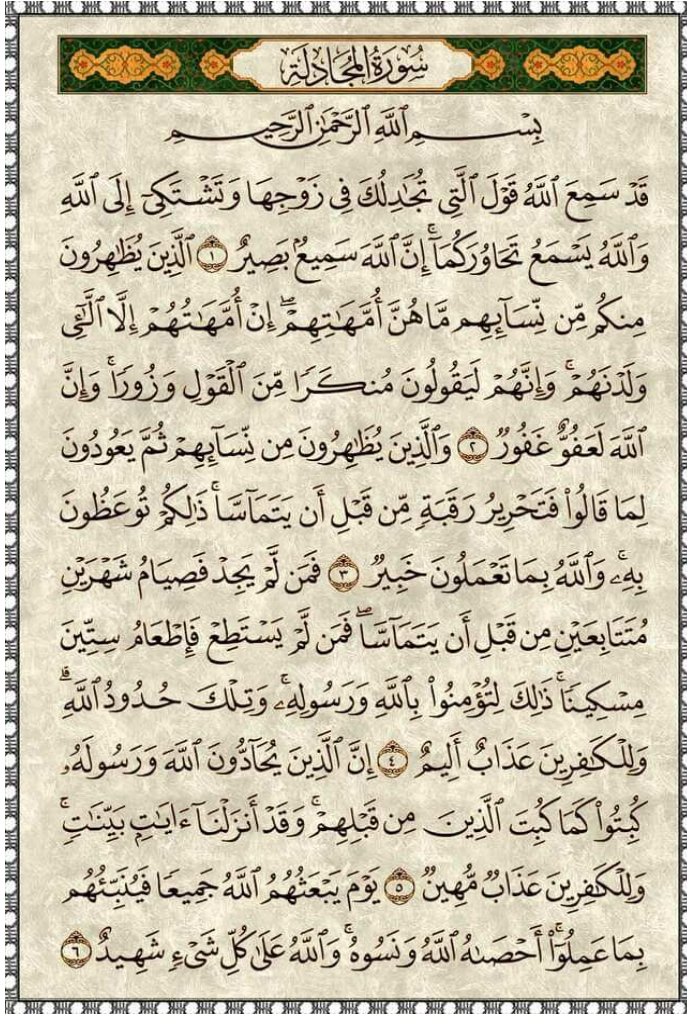 سُورَةُ المُجَادلَةِ
بِسْمِ ٱللَّهِ ٱلرَّحْمَٰنِ ٱلرَّحِيمِ
قَدْ سَمِعَ ٱللَّهُ قَوْلَ ٱلَّتِى تُجَٰدِلُكَ فِى زَوْجِهَا وَتَشْتَكِىٓ إِلَى ٱللَّهِ
وَٱللَّهُ يَسْمَعُ تَحَاوُرَكُمَآ ۚ إِنَّ ٱللَّهَ سَمِيعٌۢ بَصِيرٌ ١ ٱلَّذِينَ يُظَٰهِرُونَ
مِنكُم مِّن نِّسَآئِهِم مَّا هُنَّ أُمَّهَٰتِهِمْ ۖ إِنْ أُمَّهَٰتُهُمْ إِلَّا ٱلَّٰٓـِٔى
وَلَدْنَهُمْ ۚ وَإِنَّهُمْ لَيَقُولُونَ مُنكَرًا مِّنَ ٱلْقَوْلِ وَزُورًا ۚ وَإِنَّ
ٱللَّهَ لَعَفُوٌّ غَفُورٌ ٢ وَٱلَّذِينَ يُظَٰهِرُونَ مِن نِّسَآئِهِمْ ثُمَّ يَعُودُونَ
لِمَا قَالُوا۟ فَتَحْرِيرُ رَقَبَةٍ مِّن قَبْلِ أَن يَتَمَآسَّا ۚ ذَٰلِكُمْ تُوعَظُونَ
بِهِۦ ۚ وَٱللَّهُ بِمَا تَعْمَلُونَ خَبِيرٌ ٣ فَمَن لَّمْ يَجِدْ فَصِيَامُ شَهْرَيْنِ
مُتَتَابِعَيْنِ مِن قَبْلِ أَن يَتَمَآسَّا ۖ فَمَن لَّمْ يَسْتَطِعْ فَإِطْعَامُ سِتِّينَ
مِسْكِينًا ۚ ذَٰلِكَ لِتُؤْمِنُوا۟ بِٱللَّهِ وَرَسُولِهِۦ ۚ وَتِلْكَ حُدُودُ ٱللَّهِ ۗ
وَلِلْكَٰفِرِينَ عَذَابٌ أَلِيمٌ ٤ إِنَّ ٱلَّذِينَ يُحَآدُّونَ ٱللَّهَ وَرَسُولَهُۥ
كُبِتُوا۟ كَمَا كُبِتَ ٱلَّذِينَ مِن قَبْلِهِمْ ۚ وَقَدْ أَنزَلْنَآ ءَايَٰتٍۭ بَيِّنَٰتٍ ۚ
وَلِلْكَٰفِرِينَ عَذَابٌ مُّهِينٌ ٥ يَوْمَ يَبْعَثُهُمُ ٱللَّهُ جَمِيعًا فَيُنَبِّئُهُم
بِمَا عَمِلُوٓا۟ ۚ أَحْصَىٰهُ ٱللَّهُ وَنَسُوهُ ۚ وَٱللَّهُ عَلَىٰ كُلِّ شَىْءٍ شَهِيدٌ ٦